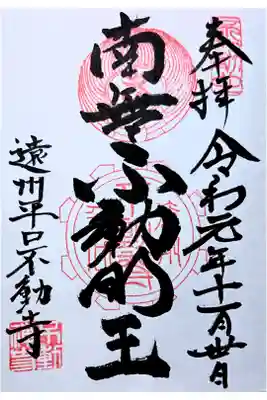 奉拝 令和元年十一月丗日
南無不動明王
遠州平口不動寺